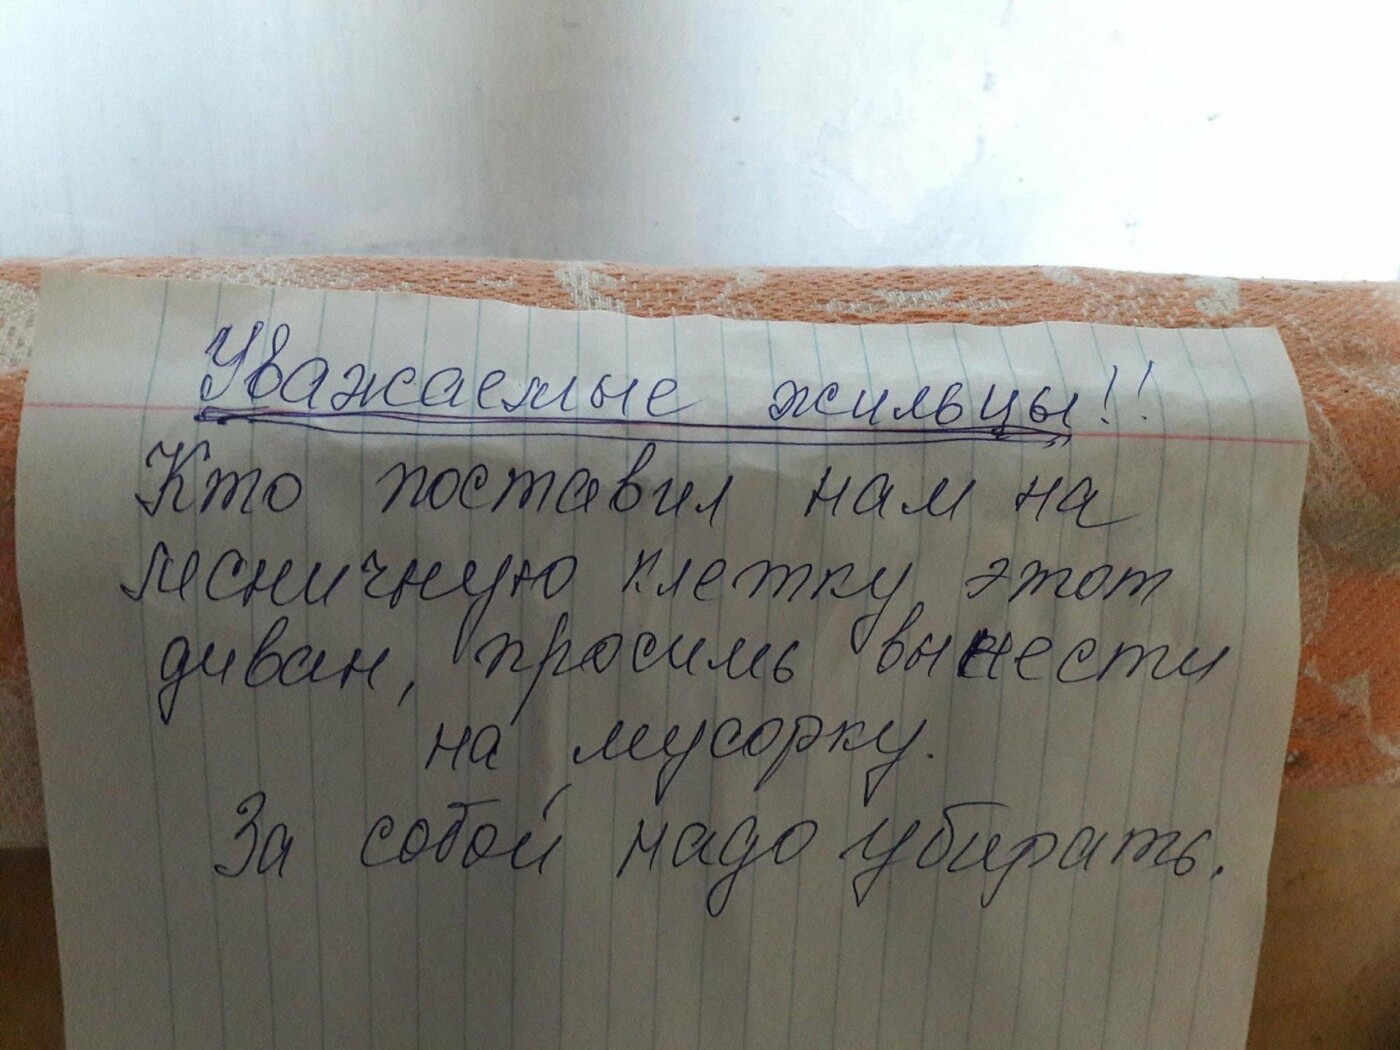 Уважаемые жильцы!!
Кто поставил нам на
лесничную клетку этот
диван, просимь вынести
на мусорку.
За собой надо убирать.